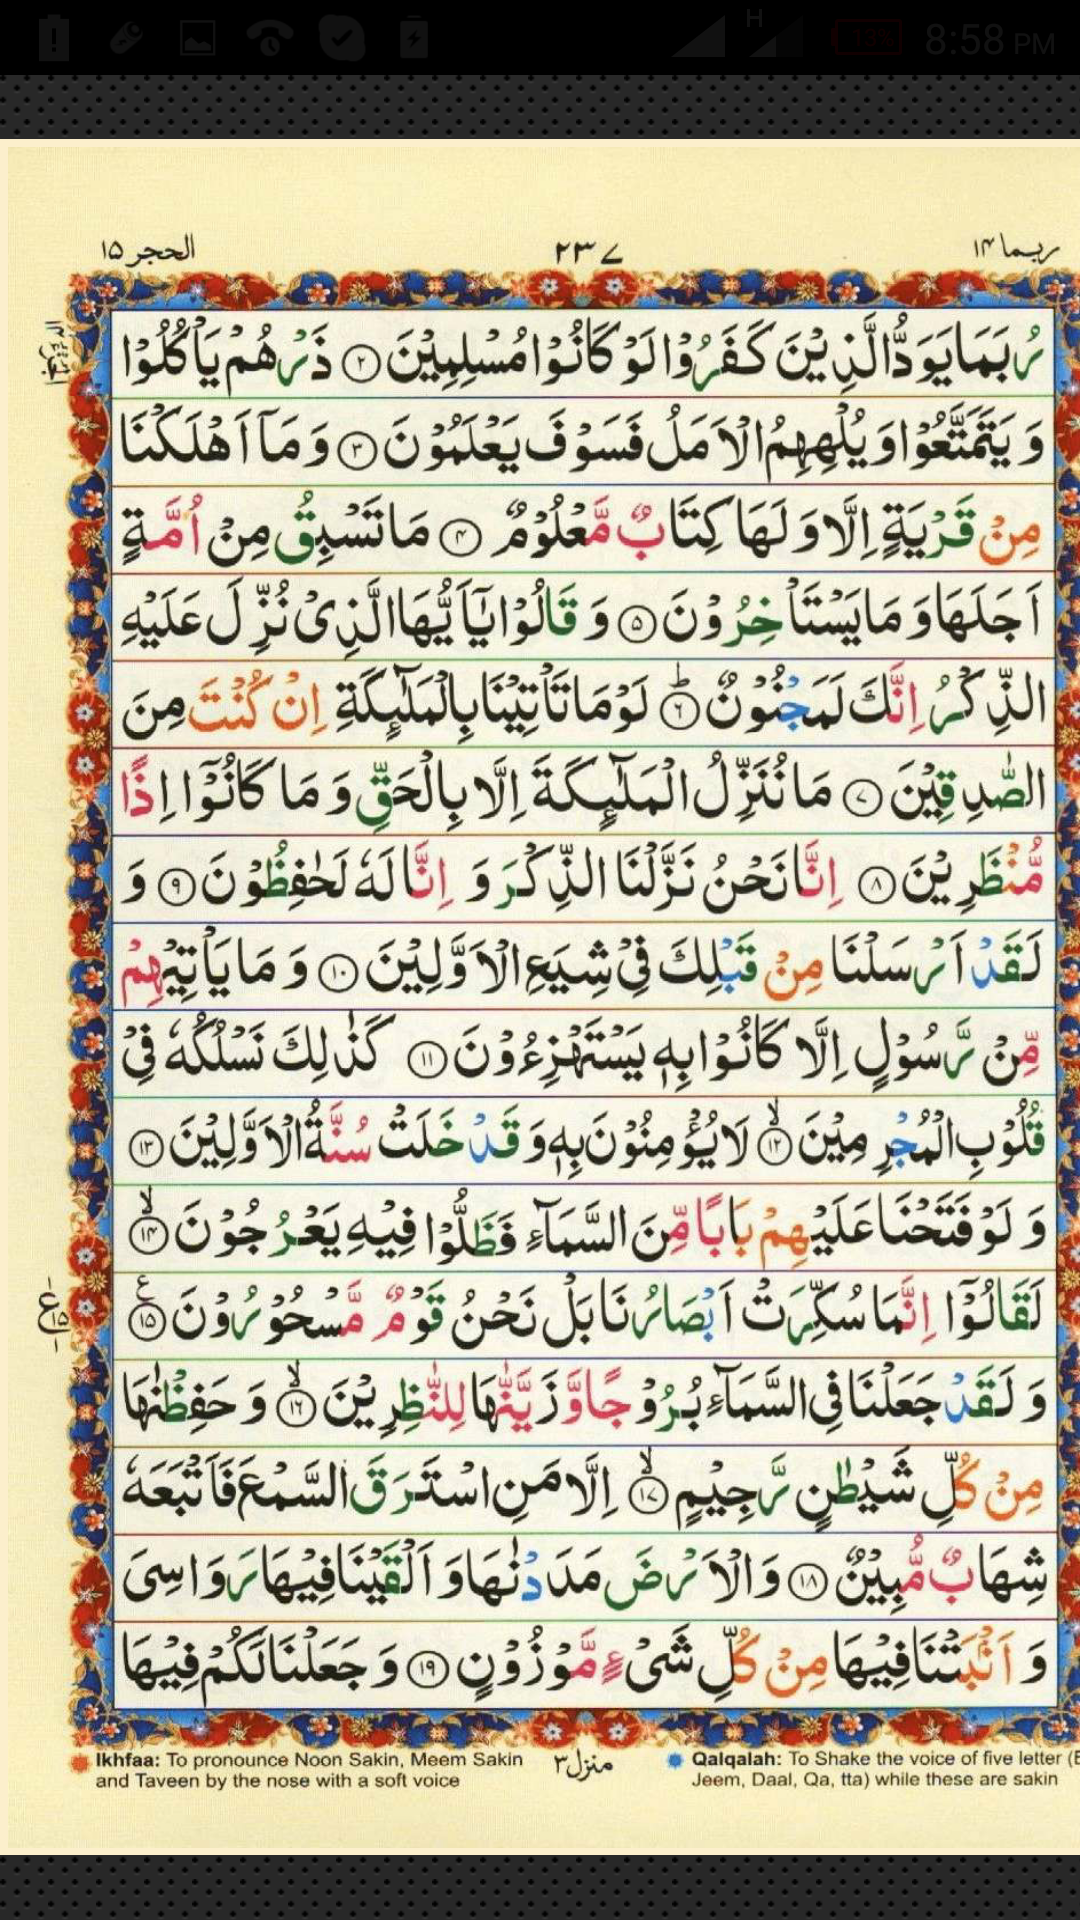 8:58 PM
H
13%
ربما ۱۴
۲۳۷
الحجر ۱۵
رُبَمَا يَوَدُّ الَّذِيْنَ كَفَرُوْا لَوْ كَانُوْا مُسْلِمِيْنَ ۲ ذَرْهُمْ يَاْكُلُوْا
وَ يَتَمَتَّعُوْا وَ يُلْهِهِمُ الْاَمَلُ فَسَوْفَ يَعْلَمُوْنَ ۳ وَ مَاۤ اَهْلَكْنَا
مِنْ قَرْيَةٍ اِلَّا وَ لَهَا كِتَابٌ مَّعْلُوْمٌ ۴ مَا تَسْبِقُ مِنْ اُمَّةٍ
اَجَلَهَا وَ مَا يَسْتَاْخِرُوْنَ ۵ وَ قَالُوْا يٰۤاَيُّهَا الَّذِىْ نُزِّلَ عَلَيْهِ
الذِّكْرُ اِنَّكَ لَمَجْنُوْنٌ ۶ؕ لَوْ مَا تَاْتِيْنَا بِالْمَلٰٓئِكَةِ اِنْ كُنْتَ مِنَ
الصّٰدِقِيْنَ ۷ مَا نُنَزِّلُ الْمَلٰٓئِكَةَ اِلَّا بِالْحَقِّ وَ مَا كَانُوْۤا اِذًا
مُّنْظَرِيْنَ ۸ اِنَّا نَحْنُ نَزَّلْنَا الذِّكْرَ وَ اِنَّا لَهٗ لَحٰفِظُوْنَ ۹ وَ
لَقَدْ اَرْسَلْنَا مِنْ قَبْلِكَ فِىْ شِيَعِ الْاَوَّلِيْنَ ۱۰ وَ مَا يَاْتِيْهِمْ
مِّنْ رَّسُوْلٍ اِلَّا كَانُوْا بِهٖ يَسْتَهْزِءُوْنَ ۱۱ كَذٰلِكَ نَسْلُكُهٗ فِىْ
قُلُوْبِ الْمُجْرِمِيْنَ ۱۲ۙ لَا يُؤْمِنُوْنَ بِهٖ وَ قَدْ خَلَتْ سُنَّةُ الْاَوَّلِيْنَ ۱۳
وَ لَوْ فَتَحْنَا عَلَيْهِمْ بَابًا مِّنَ السَّمَآءِ فَظَلُّوْا فِيْهِ يَعْرُجُوْنَ ۱۴ۙ
لَقَالُوْۤا اِنَّمَا سُكِّرَتْ اَبْصَارُنَا بَلْ نَحْنُ قَوْمٌ مَّسْحُوْرُوْنَ ۱۵ع
ع ۱۵
وَ لَقَدْ جَعَلْنَا فِى السَّمَآءِ بُرُوْجًا وَّ زَيَّنّٰهَا لِلنّٰظِرِيْنَ ۱۶ۙ وَ حَفِظْنٰهَا
مِنْ كُلِّ شَيْطٰنٍ رَّجِيْمٍ ۱۷ۙ اِلَّا مَنِ اسْتَرَقَ السَّمْعَ فَاَتْبَعَهٗ
شِهَابٌ مُّبِيْنٌ ۱۸ وَ الْاَرْضَ مَدَدْنٰهَا وَ اَلْقَيْنَا فِيْهَا رَوَاسِىَ
وَ اَنْۢبَتْنَا فِيْهَا مِنْ كُلِّ شَىْءٍ مَّوْزُوْنٍ ۱۹ وَ جَعَلْنَا لَكُمْ فِيْهَا
Ikhfaa: To pronounce Noon Sakin, Meem Sakin
and Taveen by the nose with a soft voice
منزل ۳
Qalqalah: To Shake the voice of five letter (
Jeem, Daal, Qa, tta) while these are sakin